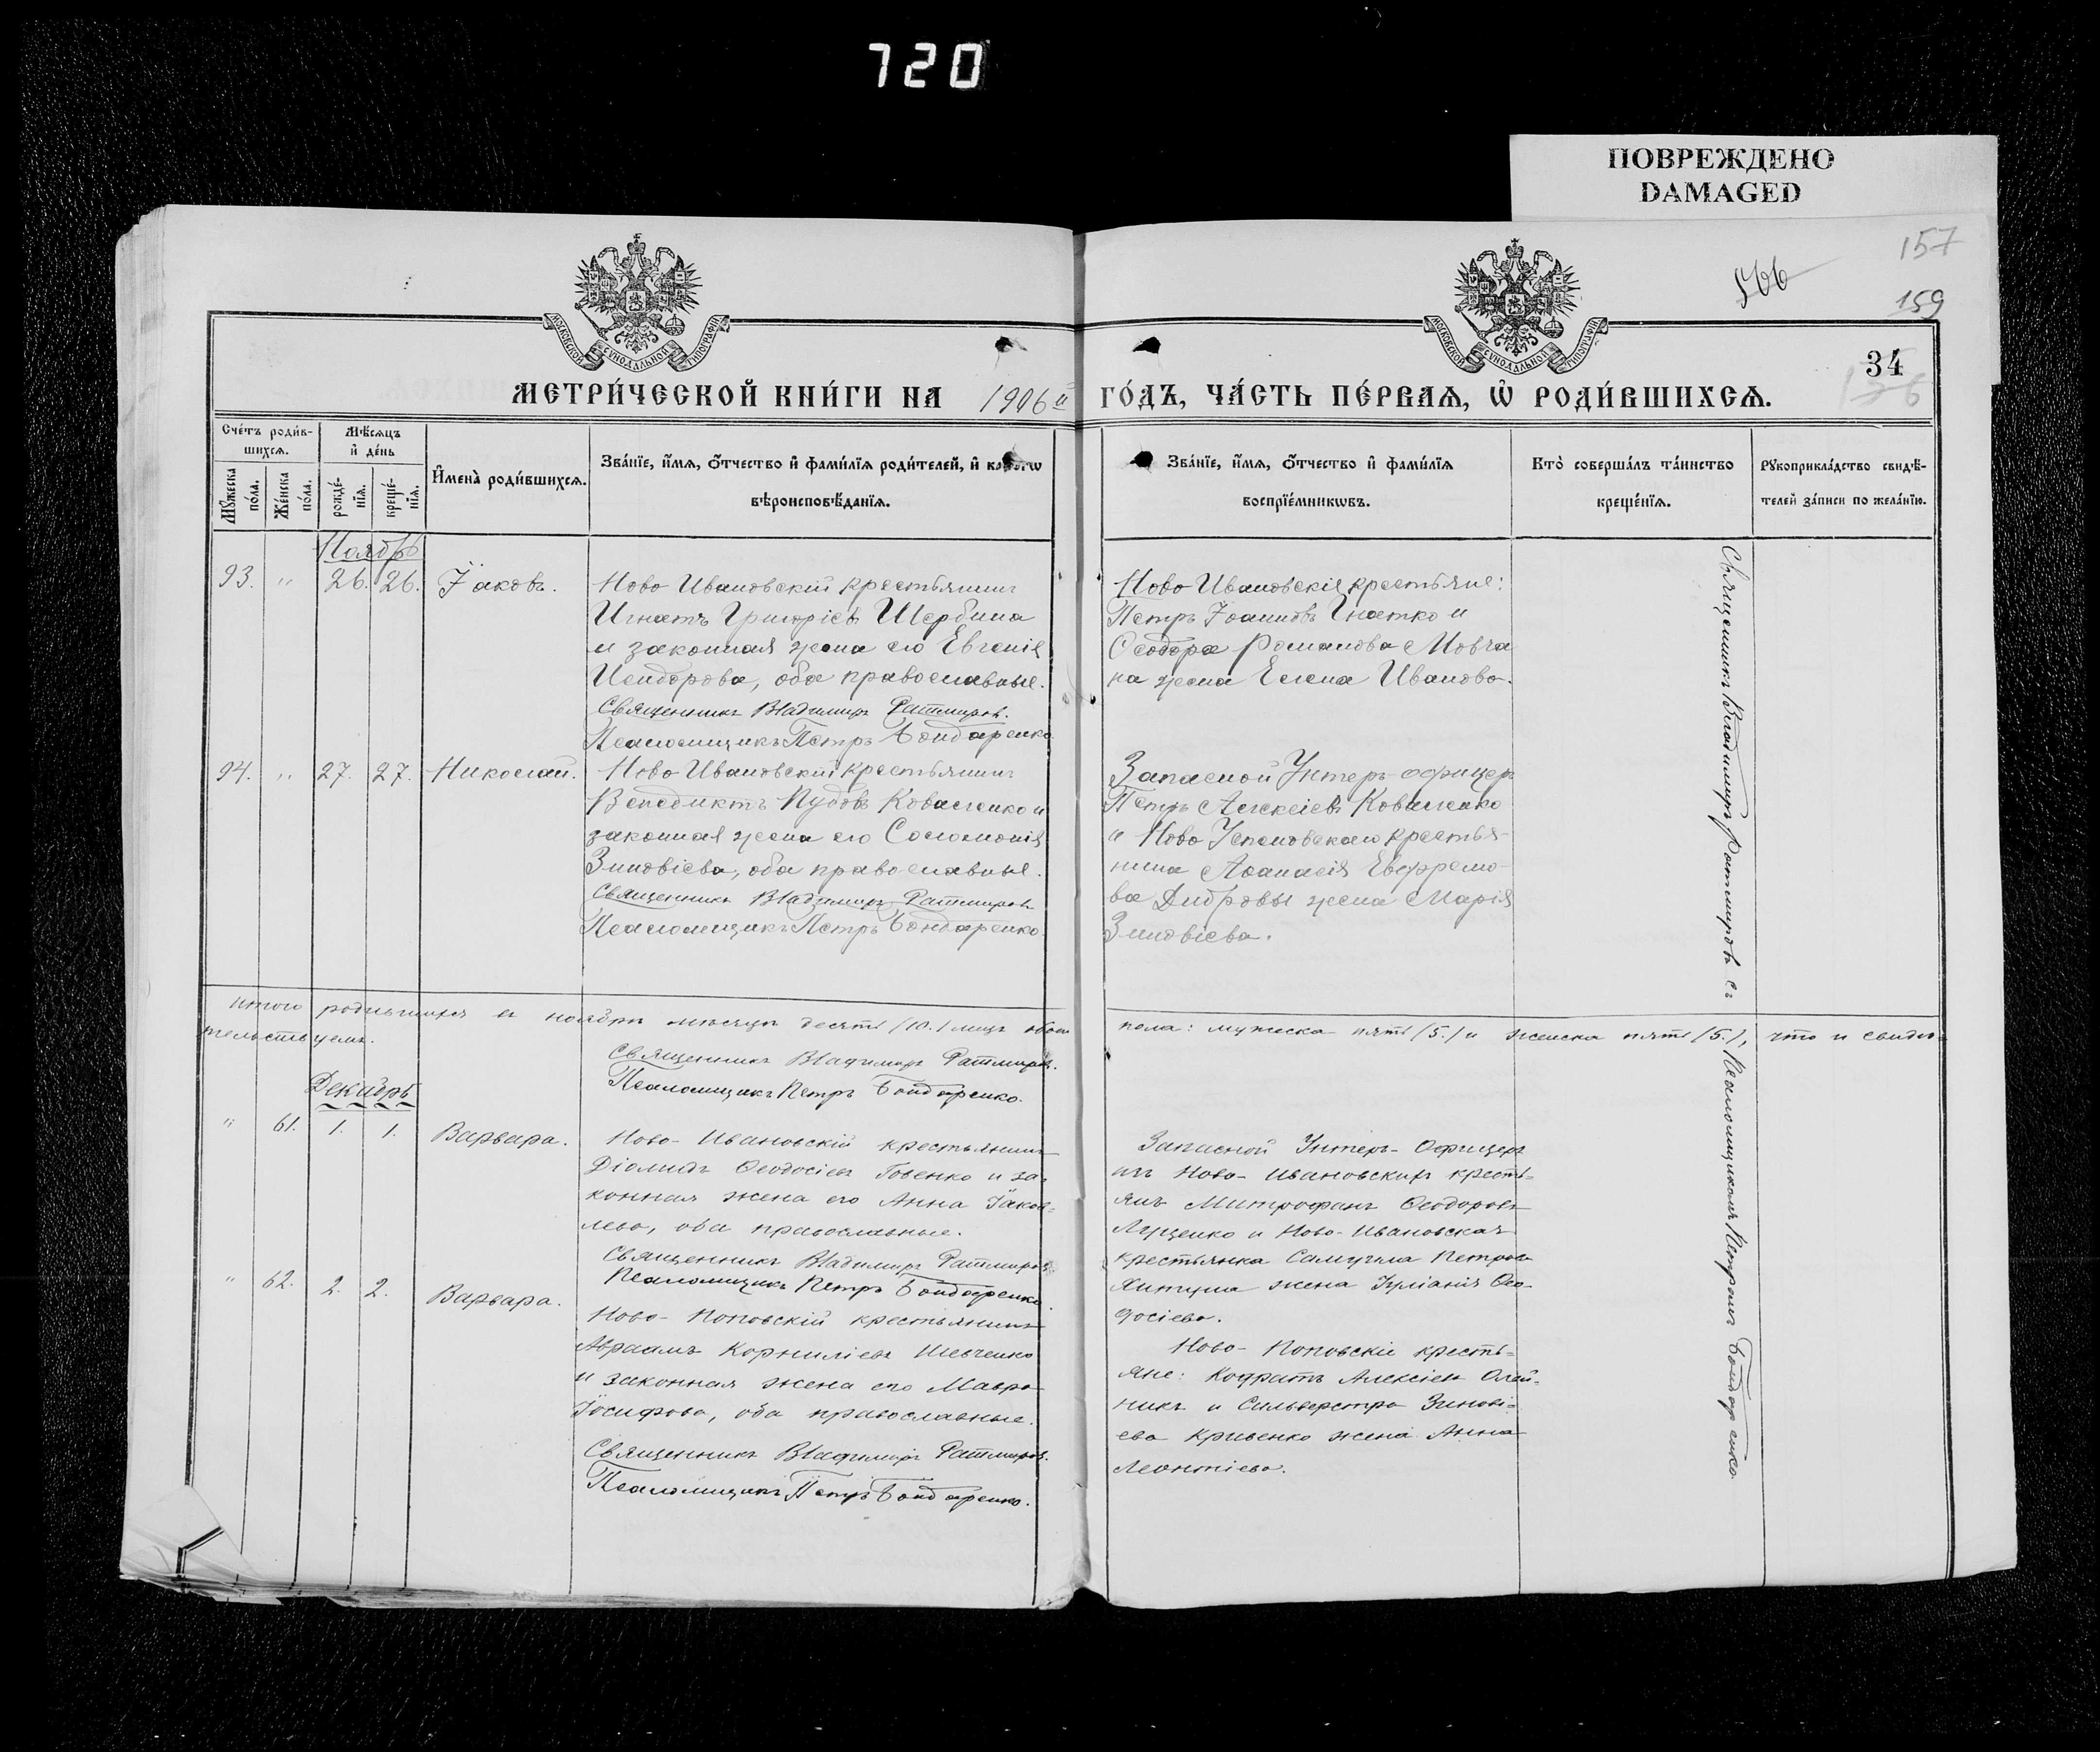 720
ПОВРЕЖДЕНО
DAMAGED
157
159
34
МОСКОВСКОЙ СѴНОДАЛЬНОЙ ТИПОГРАФІИ
МОСКОВСКОЙ СѴНОДАЛЬНОЙ ТИПОГРАФІИ
МЕТРИ́ЧЕСКОЙ КНИ́ГИ НА 1906й ГО́ДЪ, ЧА́СТЬ ПЕ́РВАЯ, Ѡ҆ РОДИ́ВШИХСѦ.
Сче́тъ роди́в-
шихсѧ.
Мꙋ́жеска по́ла.
Же́нска по́ла.
Мѣ́сѧцъ
и҆ де́нь
рожде́-
нїѧ.
креще́-
нїѧ.
И҆мена̀ роди́вшихсѧ.
Зва́нїе, и҆́мѧ, ѻ҆́тчество и҆ фами́лїѧ роди́телей, и҆ како́гѡ
вѣроисповѣ́данїѧ.
Зва́нїе, и҆́мѧ, ѻ҆́тчество и҆ фами́лїѧ
воспрїе́мникѡвъ.
Кто̀ соверша́лъ та́инство
креще́нїѧ.
Рꙋкоприкла́дство свидѣ́-
телей за́писи по жела́нїю.
Ноябрь
93. " 26. 26. Іаковъ.
Ново Ивановскій крестьянинъ
Игнатъ Григоріевъ Щербина
и законная жена его Евгенія
Исидорова, оба православные.
Священникъ Владимиръ Ратмировъ.
Псаломщикъ Петръ Бондаренко
Ново Ивановскіе крестьяне:
Петръ Іоанновъ Гнатко и
Ѳеодора Романова Мовча
на жена Елена Иванова.
94. " 27. 27. Николай.
Ново Ивановскій крестьянинъ
Венедиктъ Пудовъ Коваленко и
законная жена его Соломонія
Зиновіева, оба православные.
Священникъ Владимиръ Ратмировъ
Псаломщикъ Петръ Бондаренко
Запасной Унтеръ-офицеръ
Петръ Алексіевъ Коваленко
и Ново Успеновскаго крестья-
нина Аѳанасія Евфремо-
ва Дибровы жена Марія
Зиновіева.
Итого родившихся въ ноябрѣ мѣсяцѣ десять (10.) лицъ обоего пола: мужеска пять (5.) и женска пять (5.), что и свидѣ-
тельствуемъ.
Священникъ Владимиръ Ратмировъ.
Псаломщикъ Петръ Бондаренко.
Декабрь
" 61. 1. 1. Варвара.
Ново-Ивановскій крестьянинъ
Діомидъ Ѳеодосіевъ Говенко и за-
конная жена его Анна Іаков-
лева, оба православные.
Священникъ Владимиръ Ратмировъ
Псаломщикъ Петръ Бондаренко.
Запасной Унтеръ-Офицеръ
изъ Ново-Ивановскихъ кресть-
янъ Митрофанъ Ѳеодоровъ
Луценко и Ново-Ивановская
крестьянка Самуила Петрова
жена Іуліанія Ѳео-
досіева.
" 62. 2. 2. Варвара.
Ново-Поповскій крестьянинъ
Авраамъ Корниліевъ Шевченко
и законная жена его Мавра
Іосифова, оба православные.
Священникъ Владимиръ Ратмировъ.
Псаломщикъ Петръ Бондаренко.
Ново-Поповскіе кресть-
яне: Кодратъ Алексіевъ Олей-
никъ и Сильверстра Зинові-
ева Кривенко жена Анна
Леонтіева.
Священникъ Владимиръ Ратмировъ съ Псаломщикомъ Петромъ Бондаренко